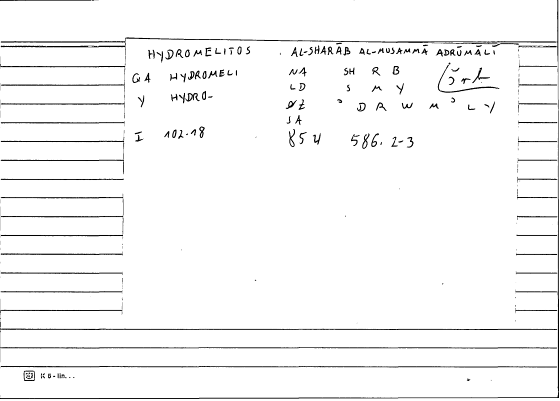 HYDROMELITOS . AL-SHARĀB AL-MUSAMMĀ ADRŪMĀLĪ
GA HYDROMELI NA SH R B
Y HYDRO- LD S M Y
ØZ ʾ D R W M ʾ L Y
SA
I 102.18 854 586. 2-3
K 6 - lin...